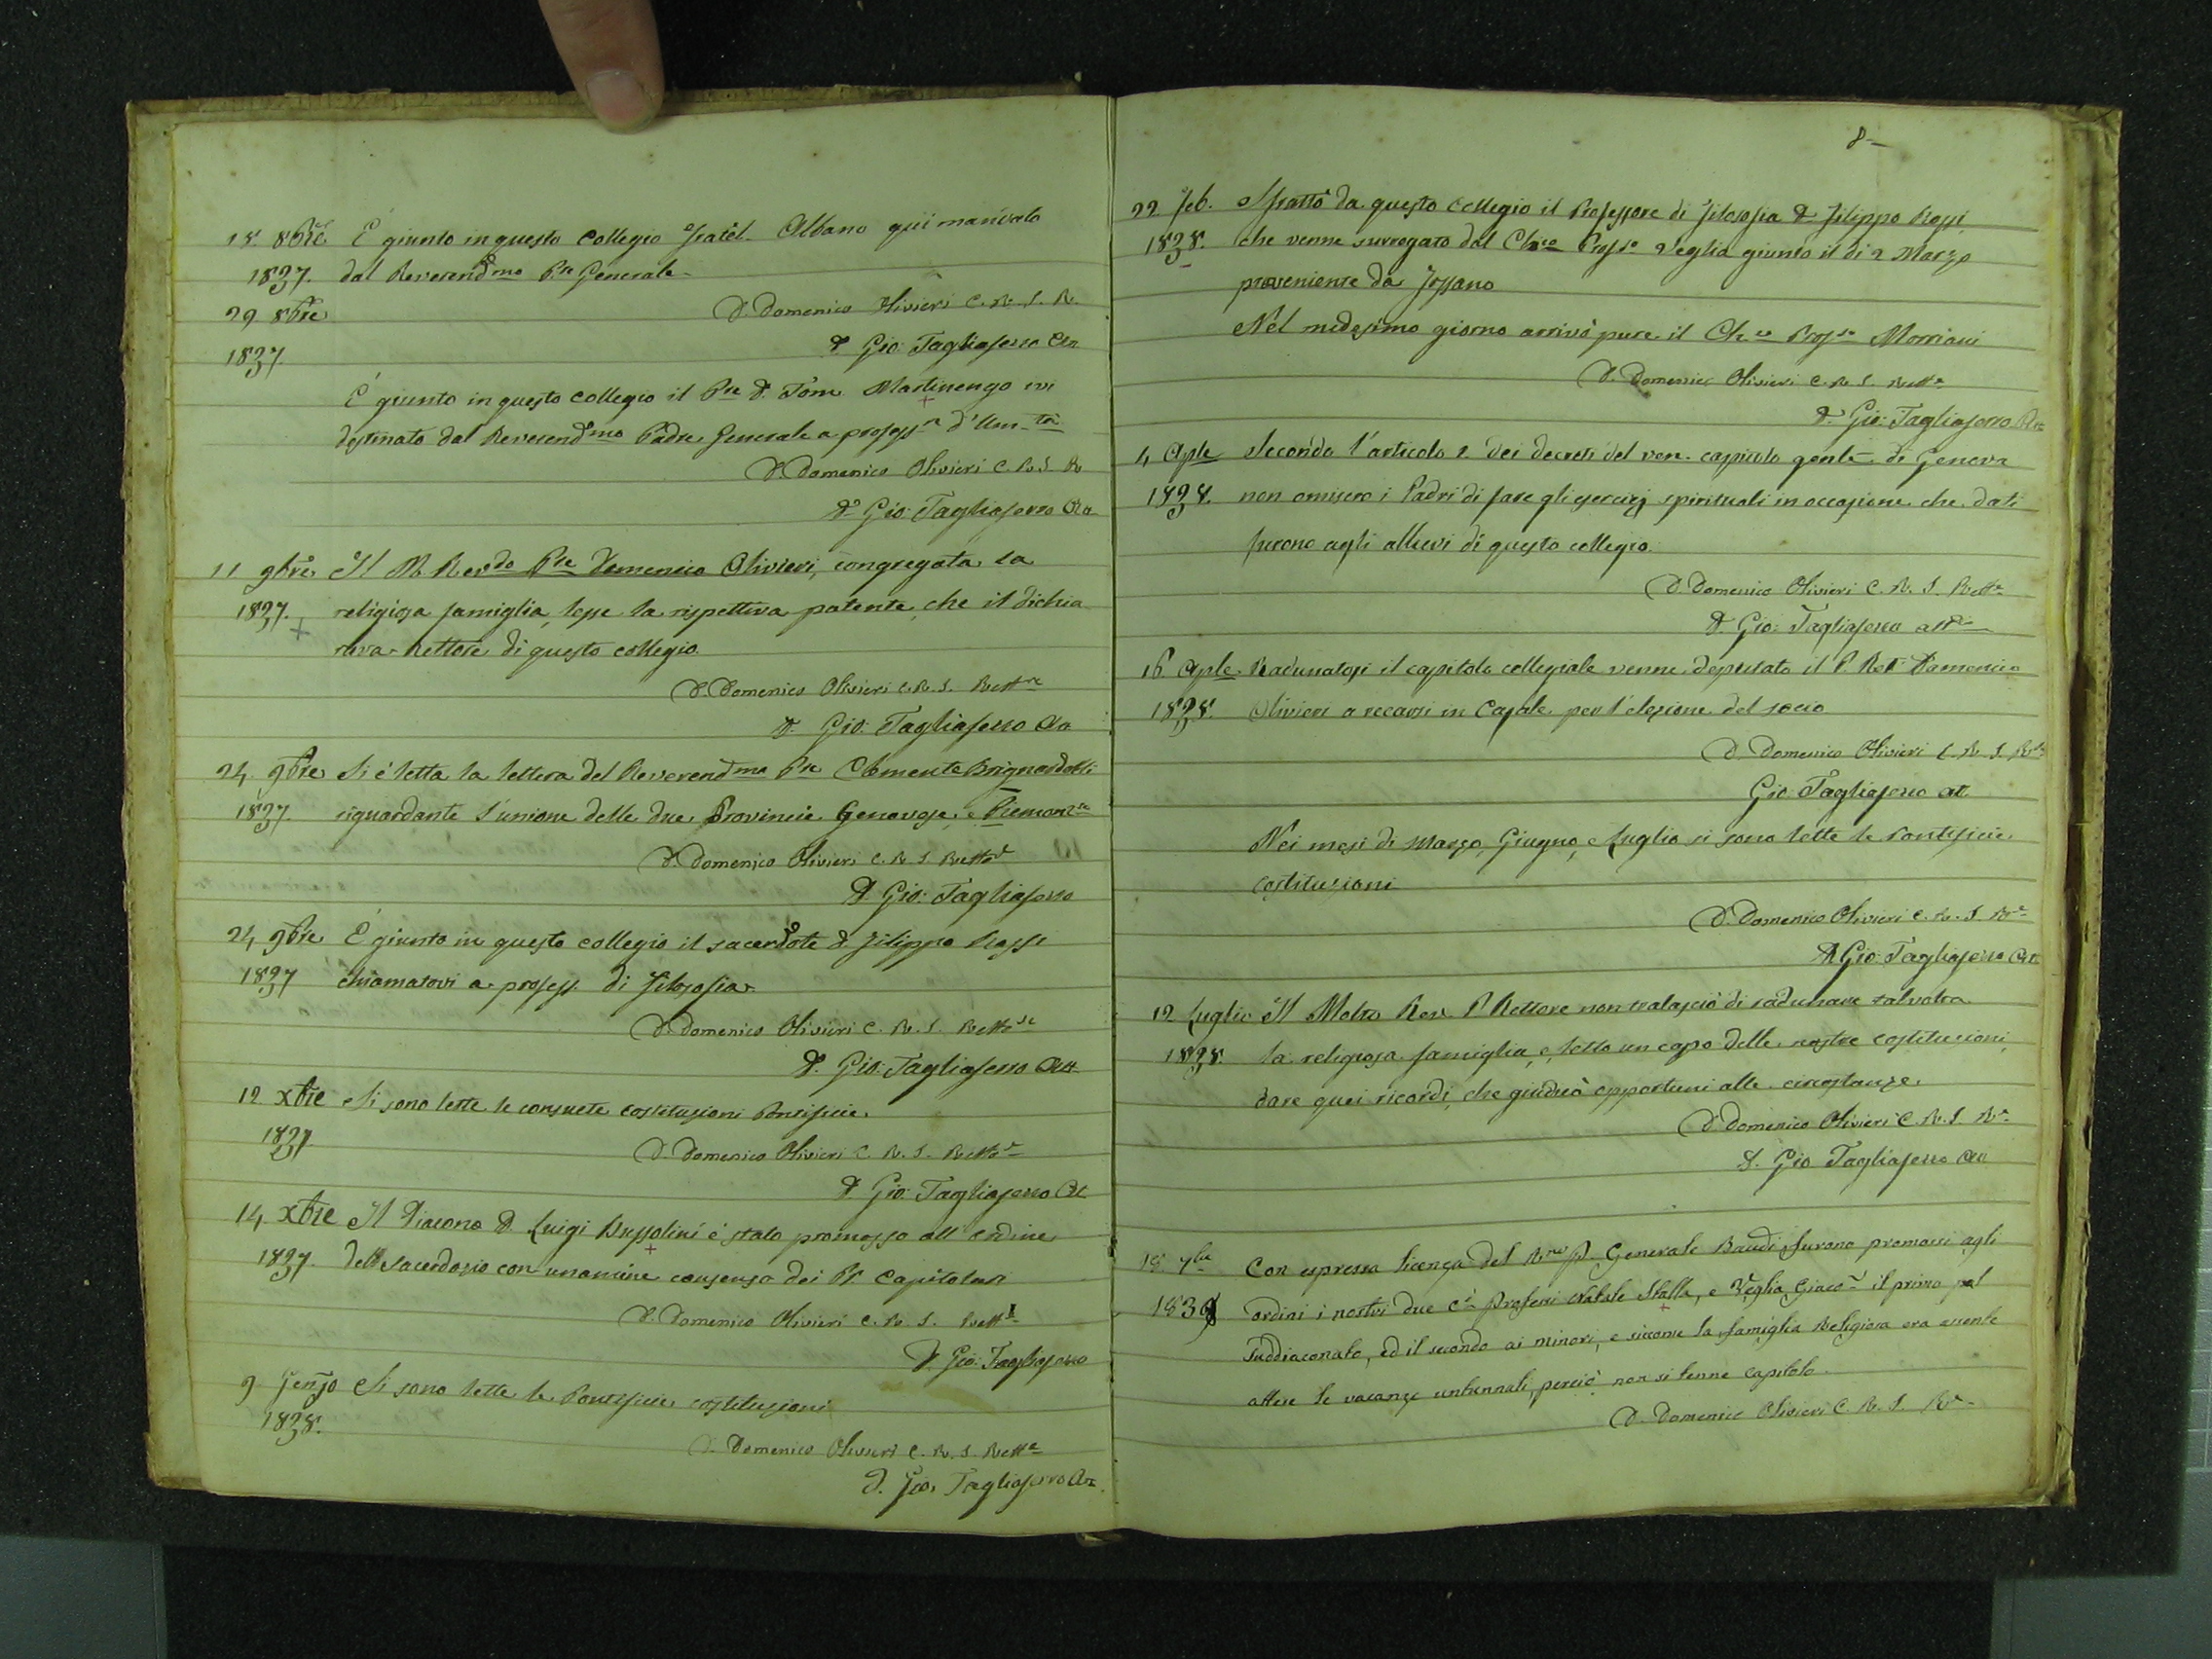 15. 8bre È giunto in questo collegio fratel. Albano quì mandato
1837. dal Reverendmo Pre Generale
29 8bre D. Domenico Olivieri C. R. S. R.
1837. D. Gio: Tagliaferro
È giunto in questo collegio il Pre D. Tom. Martinengo ivi
destinato dal Reverendmo Padre Generale a profess.re d'Um.tà
D. Domenico Olivieri C. R. S. R
D. Gio: Tagliaferro
11 9bre Il M. Revdo Pre Domenico Olivieri, congregata la
1837. religiosa famiglia, lesse la rispettiva patente, che il dichia
rava Rettore di questo collegio.
D. Domenico Olivieri C. R. S. Rettre
D. Gio: Tagliaferro
24. 9bre Si è letta la lettera del Reverendma Pre Clemente Brignardelli
1837. riguardante l'unione delle due Provincie Genovese, e Piemontse
D. Domenico Olivieri C. R. S. Rettore
D. Gio: Tagliaferro
24 9bre È giunto in questo collegio il sacerdote D. Filippo Rossi
1837 chiamatovi a profess. di Filosofia.
D. Domenico Olivieri C. R. S. Rettore
D. Gio: Tagliaferro Att
12 xbre Si sono lette le consuete costituzioni Pontificie.
1837 D. Domenico Olivieri C. R. S. Rettore
D. Gio: Tagliaferro Att
14 xbre Il Diacono D. Luigi Bussolini è stato promosso all'ordine
1837. del sacerdozio con unamine consenso dei PP. Capitolari
D. Domenico Olivieri C. R. S. Rettr
D. Gio: Tagliaferro
9 Jenjo Si sono lette le Pontificie costituzioni
1838.
D. Domenico Olivieri C. R. S. Rette
D. Gio. Tagliaferro
8
22 feb. Sfrattò da questo collegio il Professore di Filosofia D. Filippo Rossi,
1838. che venne surrogato dal Chico Profso Veglia giunto il dì 2 Marzo
proveniente da Fossano
Nel medesimo giorno arrivò pure il Ch.co Profso Morriani
D. Domenico Olivieri C. R. S. Rettre
D. Gio: Tagliaferro
4 Aple Secondo l'articolo 2 dei decreti del ven. capitolo genle di Genova
1838. non omisero i Padri di fare gli esercizj spirituali in occasione che dati
furono agli allievi di questo collegio.
D. Domenico Olivieri C. R. S. Rettre
D. Gio: Tagliaferro
16. Aple Radunatosi il capitolo collegiale venne deputato il P. Rett Domenico
1838. Olivieri a recarsi in Casale per l'elezione del socio
D. Domenico Olivieri C. R. S.
Gio: Tagliaferro at
Nei mesi di Marzo, Giugno, e Luglio si sono lette le Pontificie
costituzioni
D. Domenico Olivieri C. R. S. Re
D Gio: Tagliaferro Att
12 Luglio Il Molto Rev. P. Rettore non tralasciò di radunare talvolta
1838. la religiosa famiglia, e, letto un capo delle nostre costituzioni,
dare quei ricordi, che giudicò opportuni alle circostanze.
D Domenico Olivieri C. R. S. Re
D. Gio Tagliaferro
15 7bre Con espressa licenza del Rmo P. Generale Baudi, furono promossi agli
1838 ordini i nostri due Ci Professi Natale Stalla, e Veglia Giacomo il primo pel
suddiaconato, ed il secondo ai minori, e siccome la famiglia Religiosa era assente
attese le vacanze autunnali, perciò non si tenne capitolo.
D. Domenico Olivieri C. R. S. Re